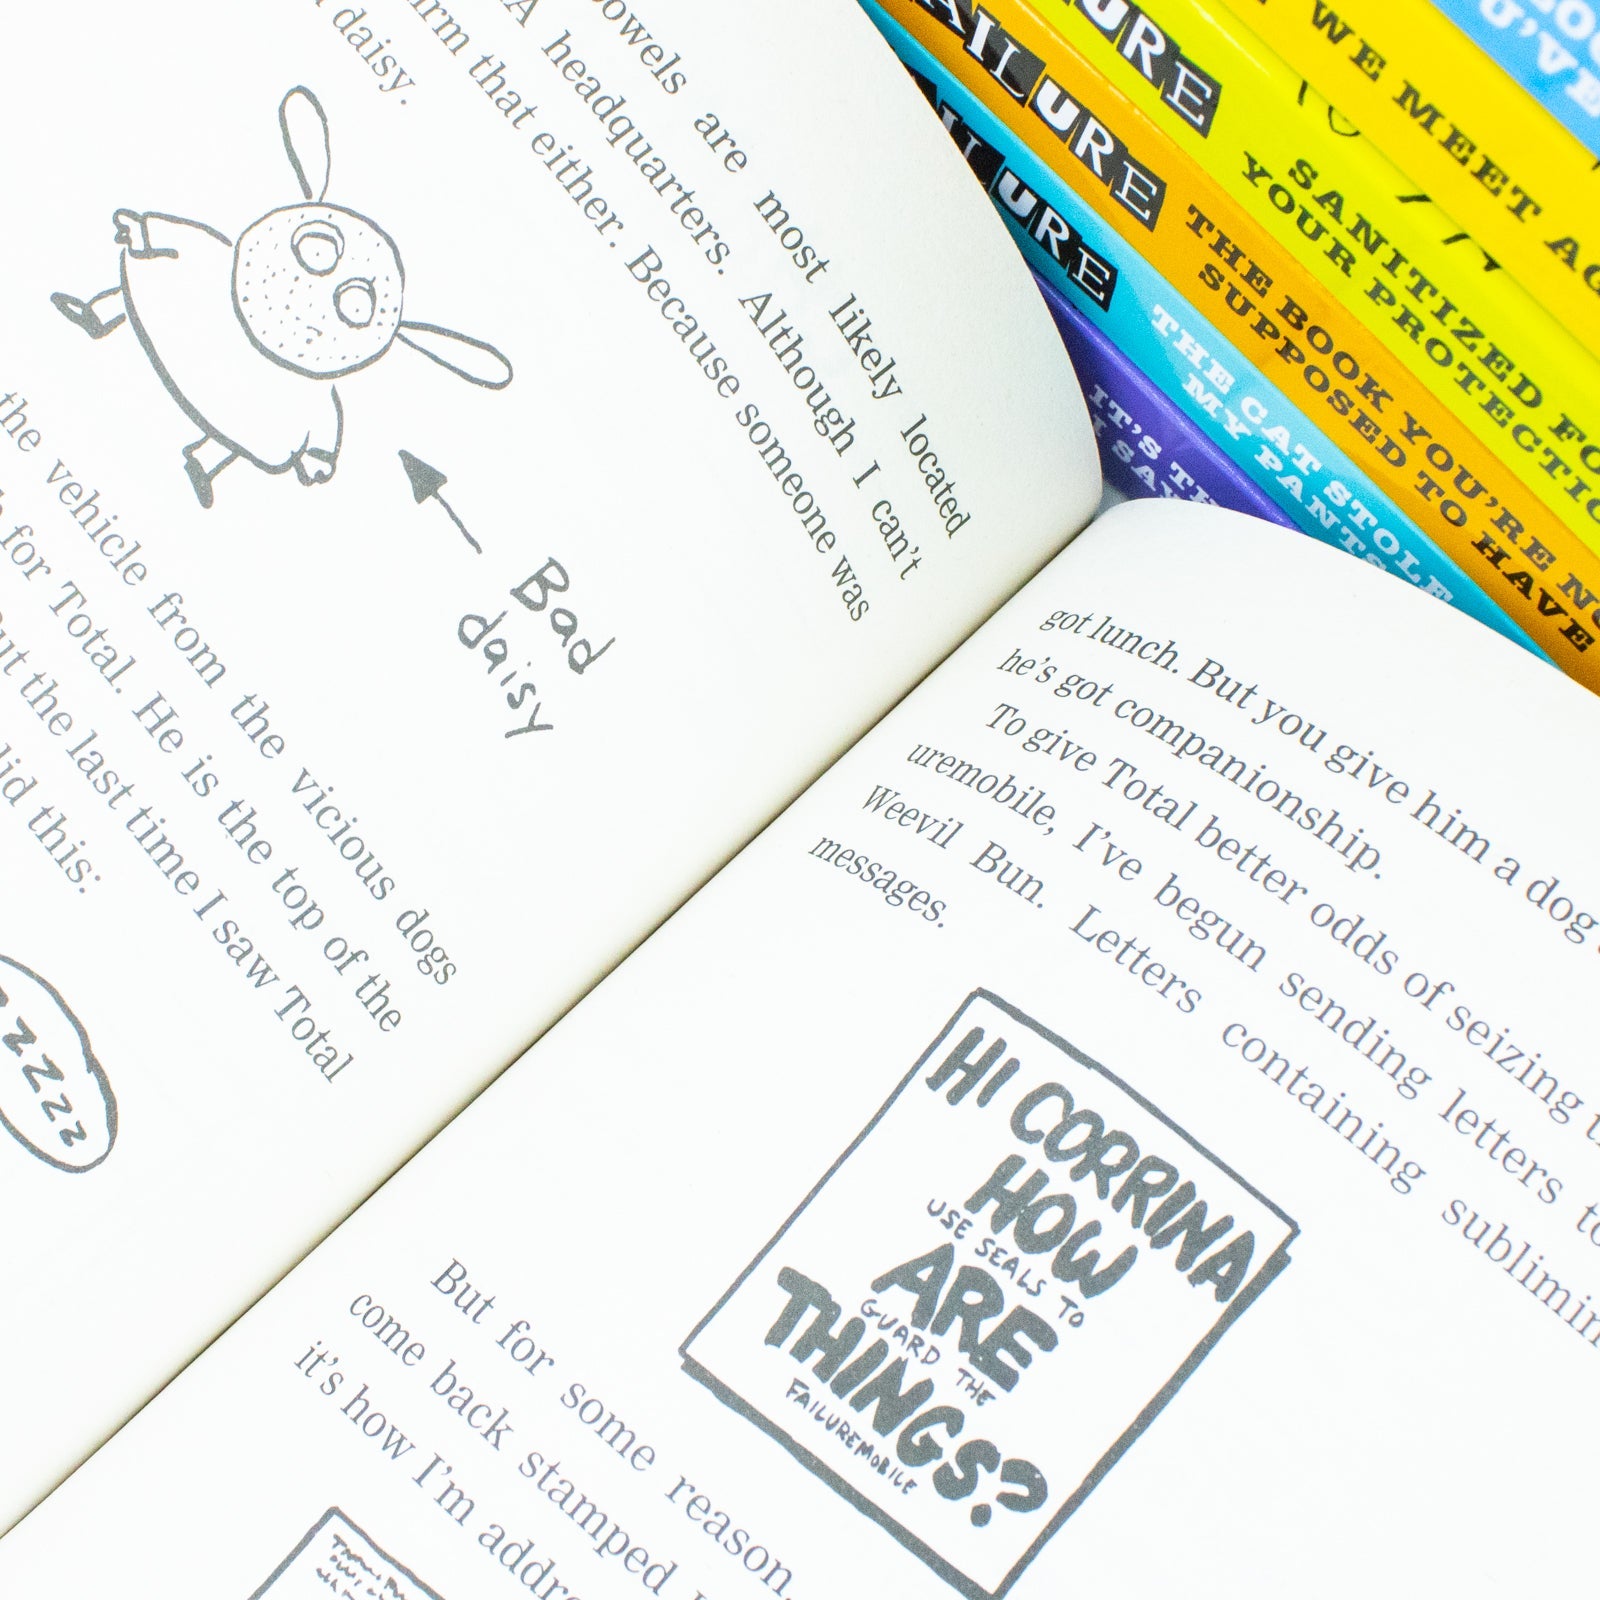 bowels are most likely located
headquarters. Although I can't
that either. Because someone was
daisy.
Bad
daisy
the vehicle from the vicious dogs
for Total. He is the top of the
the last time I saw Total
did this:
ZZZZ
got lunch. But you give him a dog
he's got companionship.
To give Total better odds of seizing
uremobile, I've begun sending letters to
Weevil Bun. Letters containing
messages.
HI CORRINA
HOW
USE SEALS TO
ARE
GUARD THE
THINGS?
FAILUREMOBILE
But for some reason,
come back stamped
it's how I'm
WE MEET
URE
SANITIZED
YOUR PROTECTION
FAILURE
THE BOOK YOU'RE
SUPPOSED TO HAVE
URE
THE CAT STOLE
MY PANTS
IT'S
I